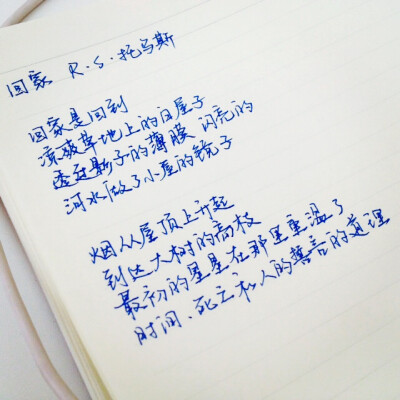 回家 R·S·托马斯
回家是回到
凉爽草地上的白屋子
透过影子的薄膜 闪亮的
河水做了小屋的镜子
烟从屋顶上升起
到达大树的高枝
最初的星星在那里重温了
时间、死亡和人的誓言的道理